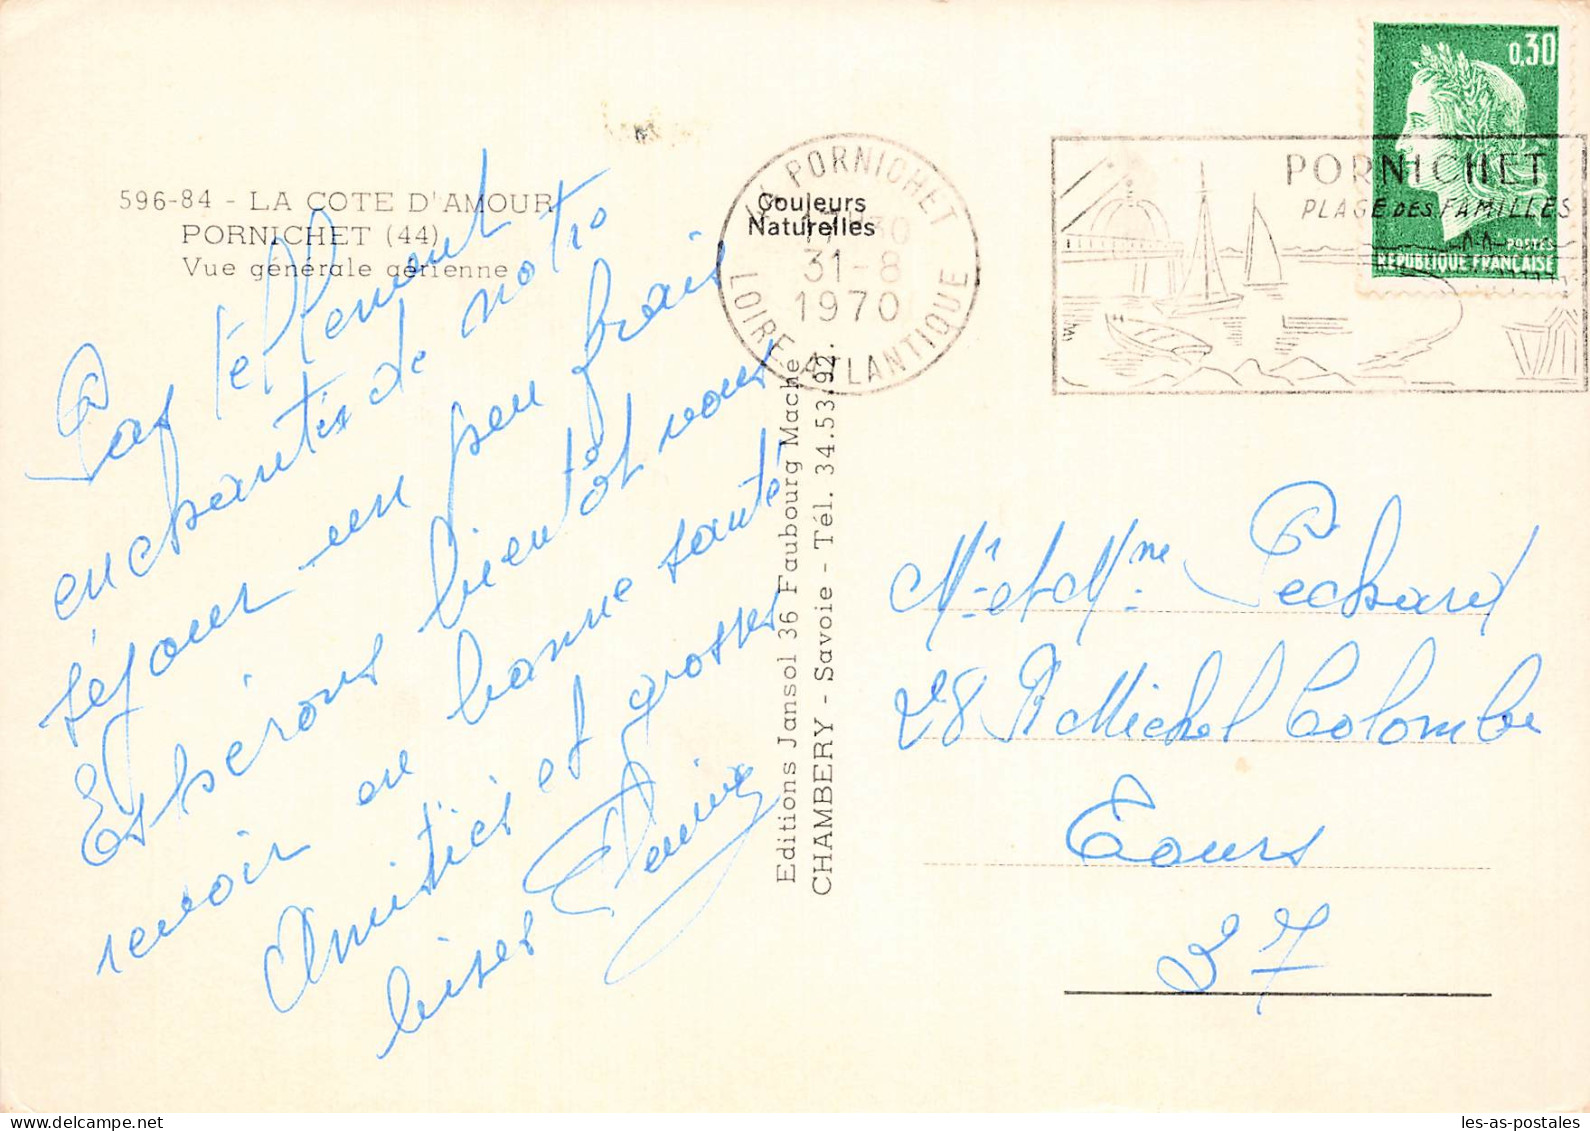 596-84 - LA COTE D'AMOUR
PORNICHET (44)
Vue générale aérienne
Pas téllement
enchantés de notre
séjour - un peu frais
Espérons bientôt vous
revoir en bonne santé
Amitiés et grosses
bises
Couleurs
Naturelles
44 PORNICHET
17H30
31-8
1970
LOIRE-ATLANTIQUE
Editions Jansol 36 Faubourg Mache
CHAMBERY - Savoie - Tél. 34.53.92.
0,30
POSTES
REPUBLIQUE FRANÇAISE
PORNICHET
PLAGE DES FAMILLES
Mr et Mme Pechard
28 R Michel Colombe
Tours
37
les-as-postales
delcampe.net